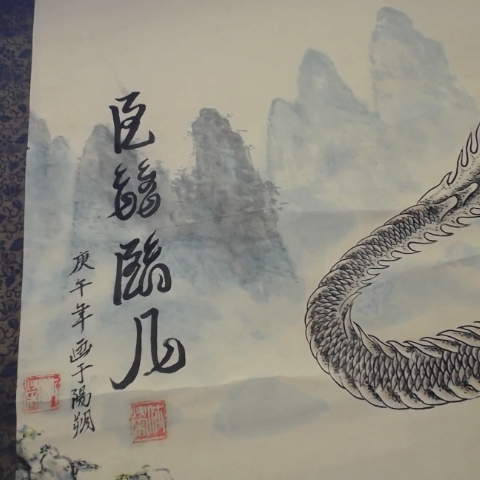 巨龍臨凡
庚午年画于陽朔